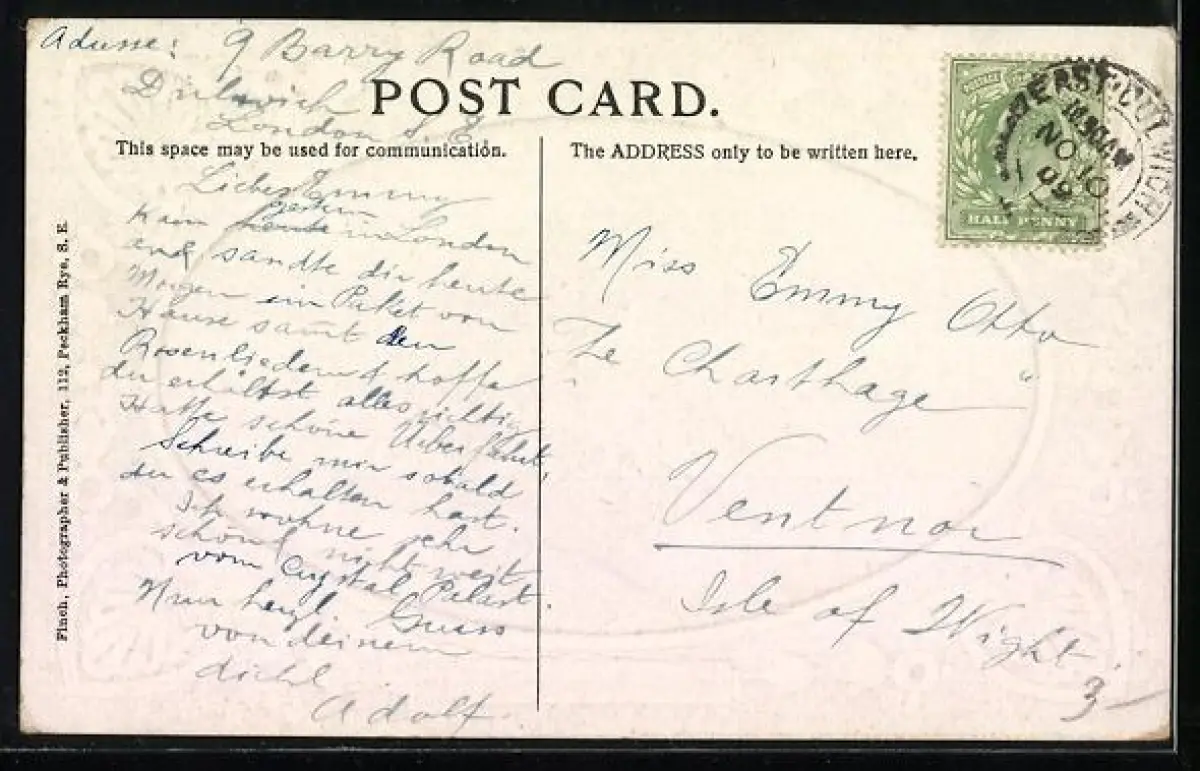 Adresse: 9 Barry Road
Dulwich
London S. E.
POST CARD.
This space may be used for communication.
The ADDRESS only to be written here.
Liebe Emmy
Kam gestern in London
and sandte dir heute
Morgen ein Paket von
Hause samt den
Rosenliedern & hoffe
du erhältst alles richtig
Hatte schöne Ueberfahrt,
Schreibe mir sobald
du es erhalten hast.
Ich wohne sehr
schön nicht weit
vom Crystal Palast.
Nun herzl Gruss
von deinem
Adolf
Miss Emmy Otto
Ventnor
Isle of Wight
3
Finch, Photographer & Publisher, 112, Peckham Rye, S. E.
HALF PENNY
EAST DULWICH
NO 10
09